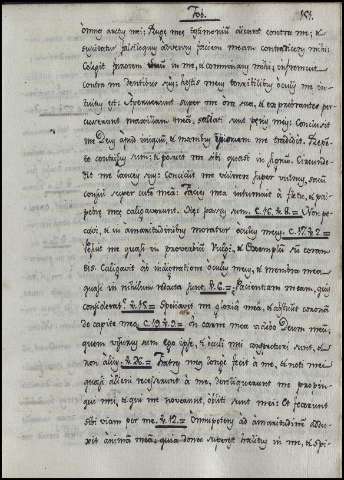 Job. 151.
omnes artus mei: Rugæ meæ testimonium dicunt contra me; &
suscitatur falsiloquus adversus faciem meam contradicens mihi:
Collegit furorem suum in me, & comminans mihi; infremuit
contra me dentibus suis; hostis meus terribilibus oculis me in
tuitus est: Aperuerunt super me ora sua, & exprobrantes per
cusserunt maxillam meã, satiati sunt pœnis meis: Conclusit
me Deus apud iniquum, & manibus impiorum me tradidit. Repẽ
te contritus sum; & posuit me sibi quasi in signum. Circumde
dit me lanceis suis: Concidit me vulnere super vulnus, saccũ
consui super cutẽ meã: Facies mea intumuit à fletu, & pal
pebræ meæ caligaverunt. Hæc passus sum. c. 16. ꝟ. 8. = Non pec
cavi, & in amaritudinibus moratur oculus meus. c. 17. ꝟ. 2. =
Posuit me quasi in proverbium vulgi, & Exemplum sũ coram
eis. Caligavit ab indignatione oculus meus, & membra mea
quasi in nihilum redacta sunt. ꝟ. 6. = Patientiam meam, quis
considerat? ꝟ. 15. = Spoliavit me gloria meã, & abstulit coronã
de capite meo. c. 19. ꝟ. 9. = in carne mea videbo Deum meũ;
quem visurus sum ego ipse, & oculi mei conspecturi sunt, &
non alius. ꝟ. 26. = Fratres meos longe fecit à me, & noti mei
quasi alieni recesserunt à me, dereliquerunt me propin
qui mei, & qui me noverant, obliti sunt mei: Et fecerunt
sibi viam per me. ꝟ. 12. = Omnipotens ad amaritudinem addu
xit animã meã; quia donec superest halitus in me, & spi-